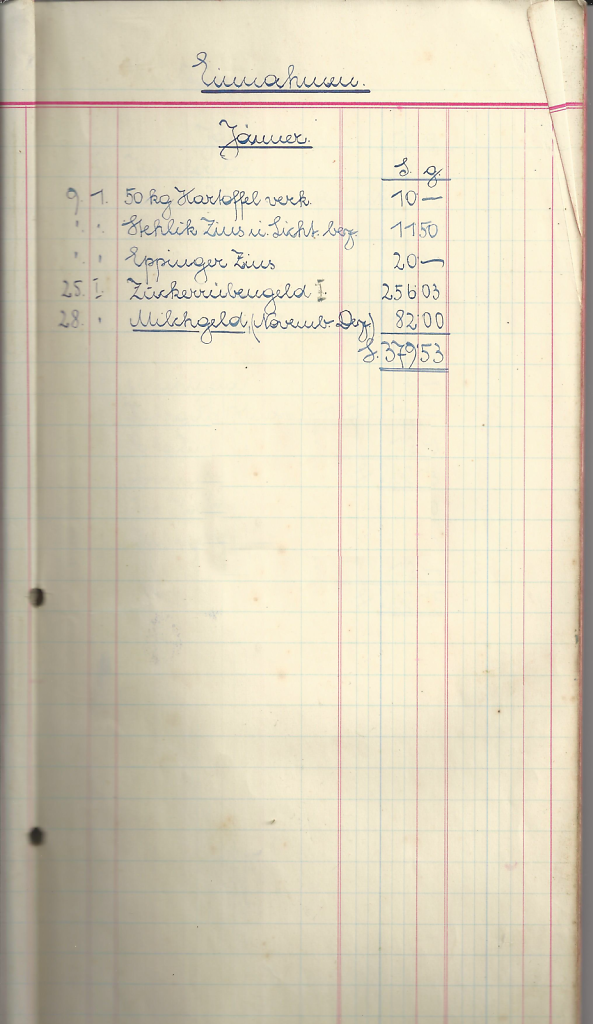 Einnahmen.
Jänner.
S. g.
9. 1. 50 kg Kartoffel verk. 10 —
" " Stehlik Zins u. Licht bez. 11 50
" " Eppinger Zins 20 —
25. I. Zuckerrübengeld I. 256 03
28. " Milchgeld, (Novemb. Dez) 82 00
S. 379 53